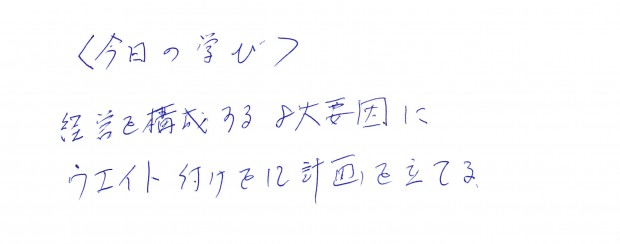 〈今日の学び〉
経営を構成する8大要因に
ウエイト付けをして計画を立てる